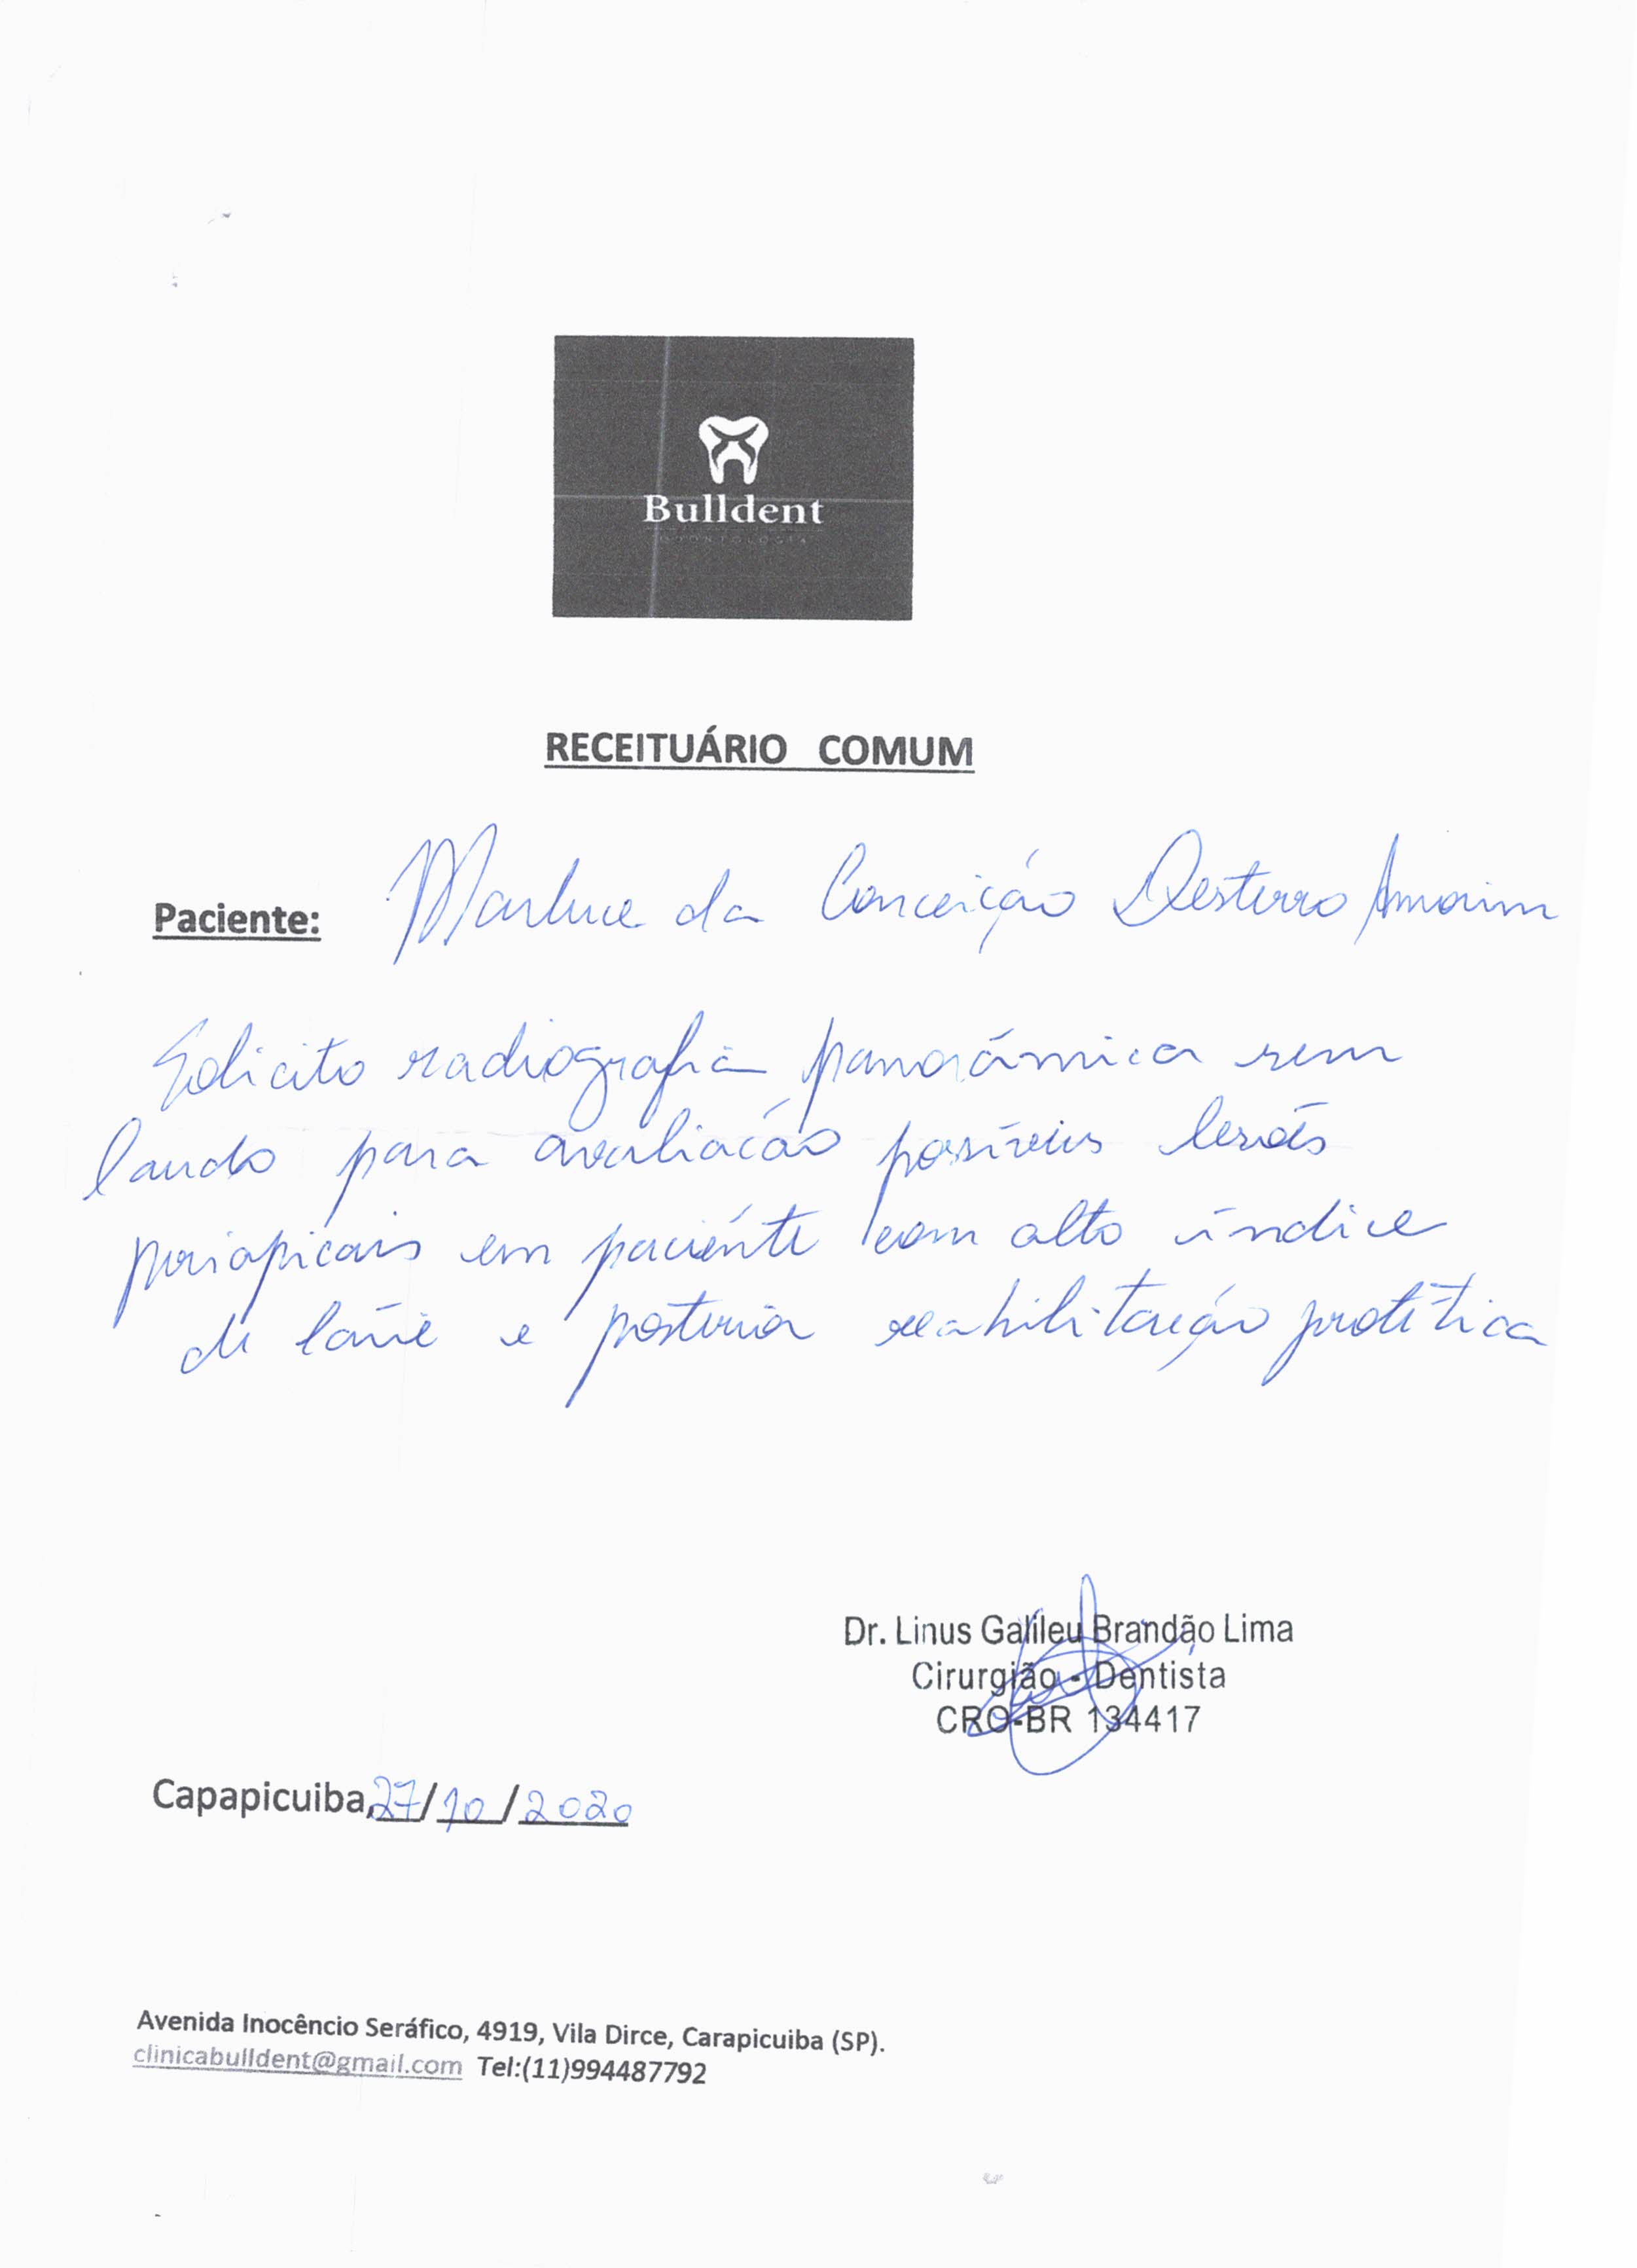 Bulldent
ODONTOLOGIA
RECEITUÁRIO COMUM
Paciente: Marluce da Conceição Desterro Amorim
Solicito radiografia panorâmica sem
laudo para avaliacão possíveis lesões
periapicais em paciente com alto índice
de cárie e posterior reabilitação protética
Dr. Linus Galileu Brandão Lima
Cirurgião - Dentista
CRO-BR 134417
Capapicuiba, 27/10/2020
Avenida Inocêncio Seráfico, 4919, Vila Dirce, Carapicuiba (SP).
clinicabulldent@gmail.com Tel:(11)994487792